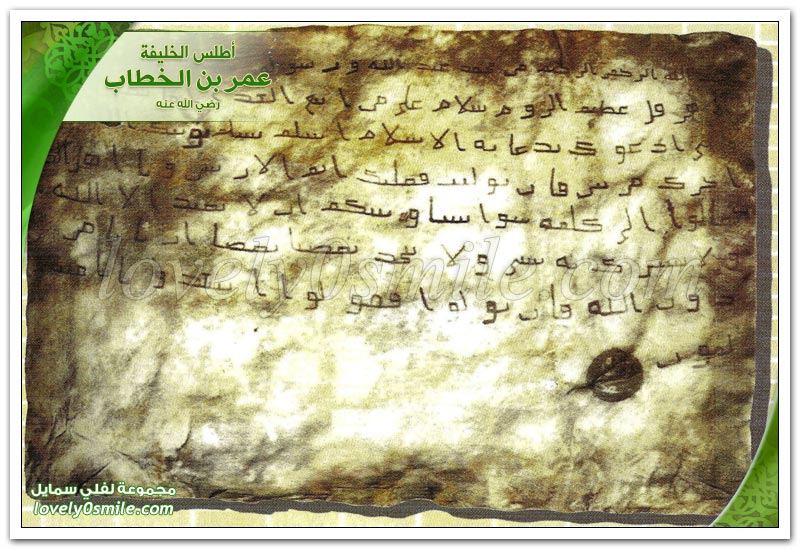 أطلس الخليفة
عمر بن الخطاب
رضي الله عنه
الله الرحمن الرحيم من محمد عبد الله ورسو
هرقل عظيم الروم سلام على من اتبع الهد
ادعوك بدعاية الاسلام اسلم تسلم
اجرك مرتين فان توليت فعليك اثم الاريسين ويا اهل
تعالوا الى كلمة سوا بيننا وبينكم ان لا نعبد الا الله
ولا نشرك به شي ولا يتخذ بعضنا بعضا اربابا من
دون الله فان تولوا فقولوا
لمون
lovely0smile.com
مجموعة لفلي سمايل
lovely0smile.com